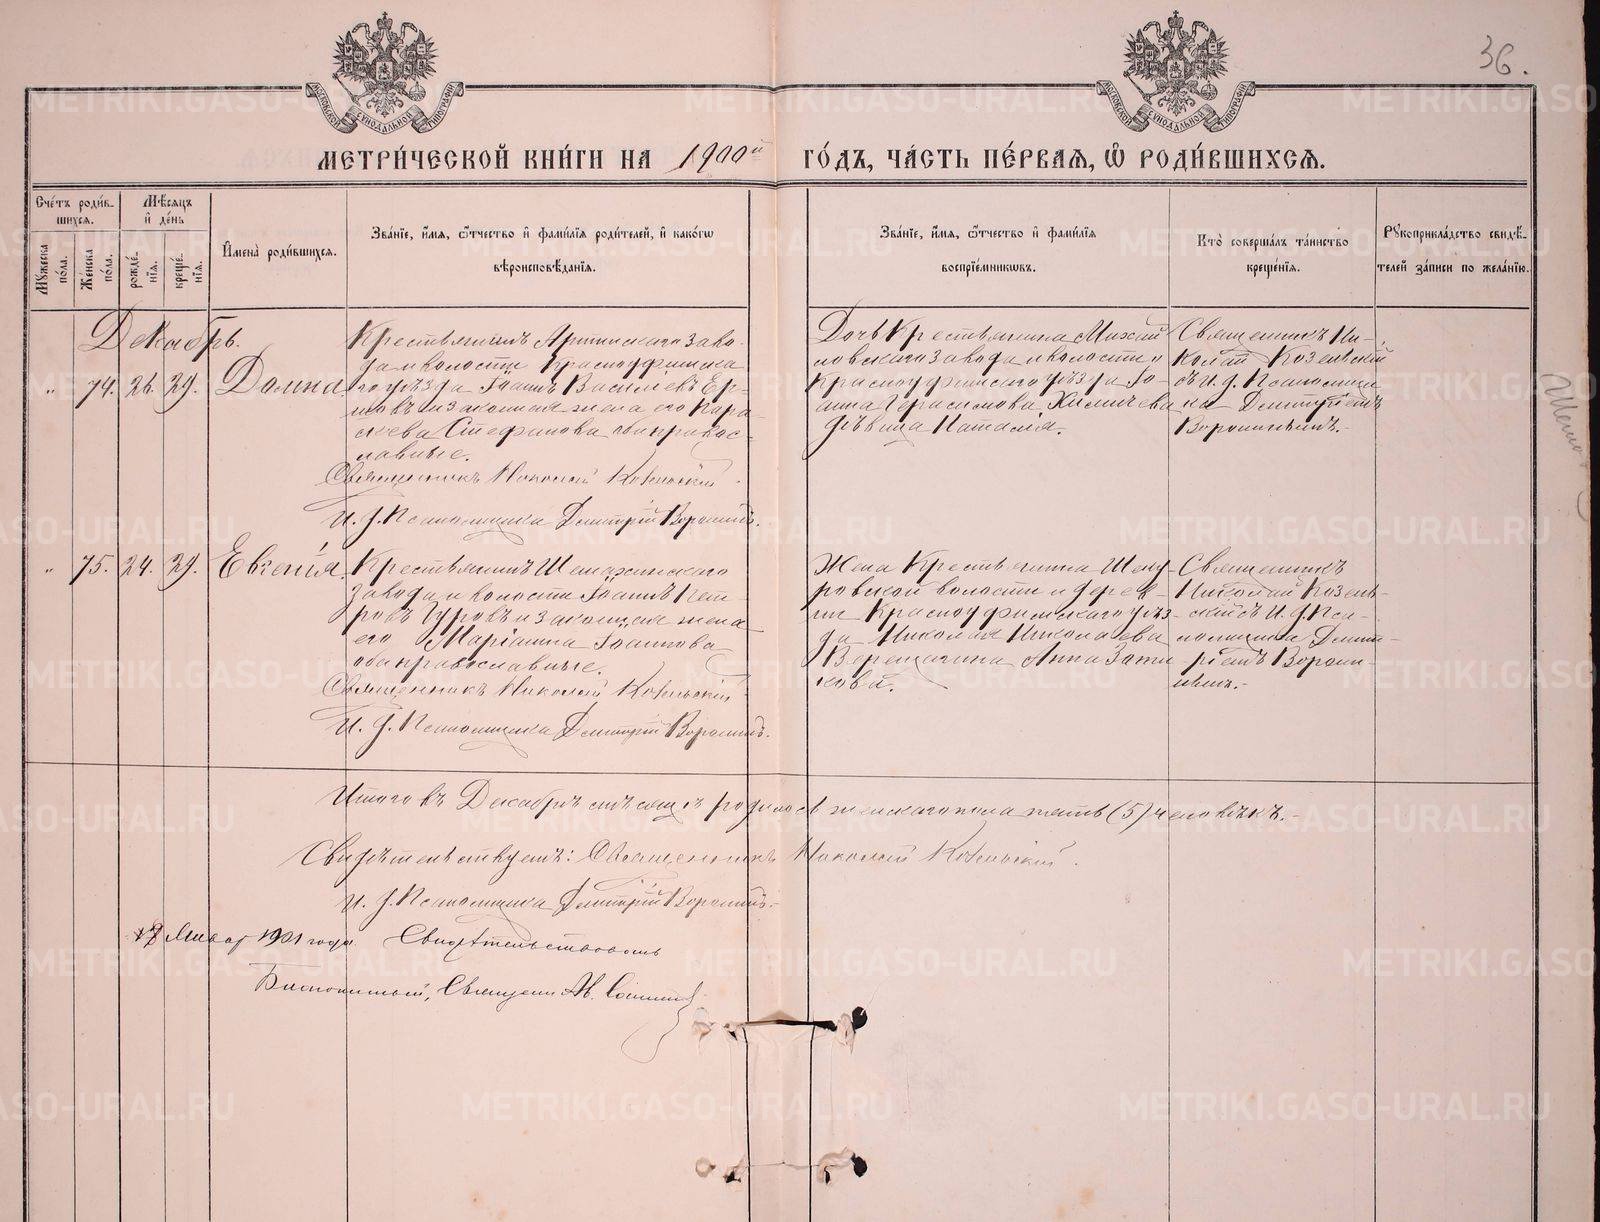 36.
МОСКОВСКОЙ СѴНОДАЛЬНОЙ ТИПОГРАФІИ
МОСКОВСКОЙ СѴНОДАЛЬНОЙ ТИПОГРАФІИ
МЕТРИ́ЧЕСКОЙ КНИ́ГИ НА 1900й ГО́ДЪ, ЧА́СТЬ ПЕ́РВАѦ, Ѡ҆ РОДИ́ВШИХСѦ.
Сче́тъ роди́вшихсѧ.
Мꙋжеска по́ла.
Же́нска по́ла.
Мѣ́сѧцъ и҆ де́нь
рожде́нїѧ.
креще́нїѧ.
И҆мена̀ роди́вшихсѧ.
Зва́нїе, и҆́мѧ, ѻ҆́тчество и҆ фами́лїѧ роди́телей, и҆ како́гѡ
вѣроисповѣ́данїѧ.
Зва́нїе, и҆́мѧ, ѻ҆́тчество и҆ фами́лїѧ
воспрїе́мникѡвъ.
Кто̀ соверша́лъ та́инство
креще́нїѧ.
Рꙋкоприкла́дство свидѣ́-
телей за́писи по жела́нїю.
Декабрь.
„ 74. 26. 29. Домна.
Крестьянинъ Артинскаго заво-
да и волости Красноуфимска-
го уѣзда Іоаннъ Василіевъ
и законная жена его
Стефанова оба правос-
лавные.
Священникъ Николай Козельскій
И. д. Псаломщика Димитрій Воронинъ.
Дочь Крестьянина Михай-
ловскаго завода и волости
Красноуфимскаго уѣзда Іо-
анна Герасимова
дѣвица Наталія.
Священникъ Ни-
колай Козельскій
съ И. д. Псаломщи-
ка Димитріемъ
Воронинымъ.-
„ 75. 24. 29. Евгенія.
Крестьянинъ Шемахинскаго
завода и волости Іоаннъ Пет-
ровъ Гуровъ и законная жена
его Маріанна Іоаннова
оба православные.
Священникъ Николай Козельскій
И. д. Псаломщика Димитрій Воронинъ.
Жена Крестьянина Шему-
ровской волости и дерев-
ни Красноуфимскаго уѣз-
да Николая Николаева
Верещагина Анна
Священникъ
Николай Козель-
скій съ И. д. Пса-
ломщика Дими-
тріемъ Ворони-
нымъ.-
Итого въ Декабрѣ мѣсяцѣ родилось женскаго пола пять (5) человѣкъ.-
Свидѣтельствуетъ: Священникъ Николай Козельскій.
И. д. Псаломщика Димитрій Воронинъ.-
Январ 1901 года Свидѣтельствовалъ
Благочинный, Священн
METRIKI.GASO-URAL.RU